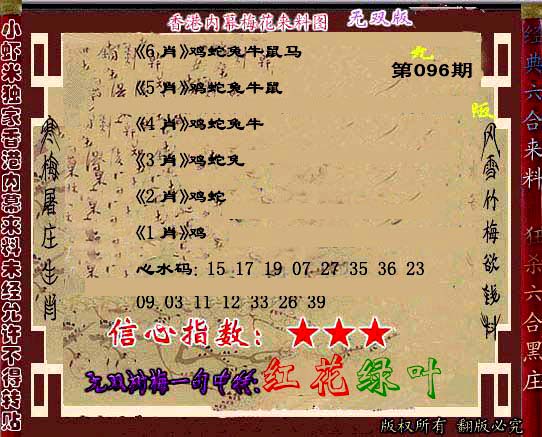 香港内幕梅花来料图 无双版
第096期
《6 肖》鸡蛇兔牛鼠马
《5 肖》鸡蛇兔牛鼠
《4 肖》鸡蛇兔牛
《3 肖》鸡蛇兔
《2 肖》鸡蛇
《1 肖》鸡
心水码: 15 17 19 07 27 35 36 23
09 03 11 12 33 26 39
信心指数: ★★★
一句中特:红花绿叶
版权所有 翻版必究
小虾米独家香港内幕来料未经允许不得转贴
寒梅屠庄生肖
风雪竹梅欲钱料
经典六合来料 狂杀六合黑庄